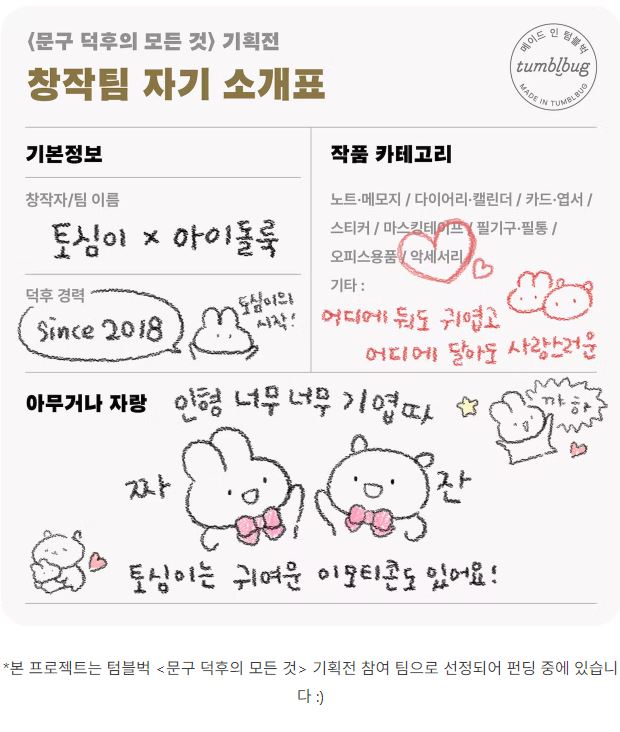 <문구 덕후의 모든 것> 기획전
창작팀 자기 소개표
메이드 인 텀블벅
tumblbug
MADE IN TUMBLBUG
기본정보
창작자/팀 이름
토심이 x 아이돌룩
덕후 경력
since 2018
토심이의
시작!
작품 카테고리
노트·메모지 / 다이어리·캘린더 / 카드·엽서 /
스티커 / 마스킹테이프 / 필기구·필통 /
오피스용품 / 악세서리
기타 :
어디에 둬도 귀엽고
어디에 달아도 사랑스러운
아무거나 자랑
인형 너무 너무 기엽따
꺄하
짜
잔
토심이는 귀여운 이모티콘도 있어요!
*본 프로젝트는 텀블벅 <문구 덕후의 모든 것> 기획전 참여 팀으로 선정되어 펀딩 중에 있습니
다 :)